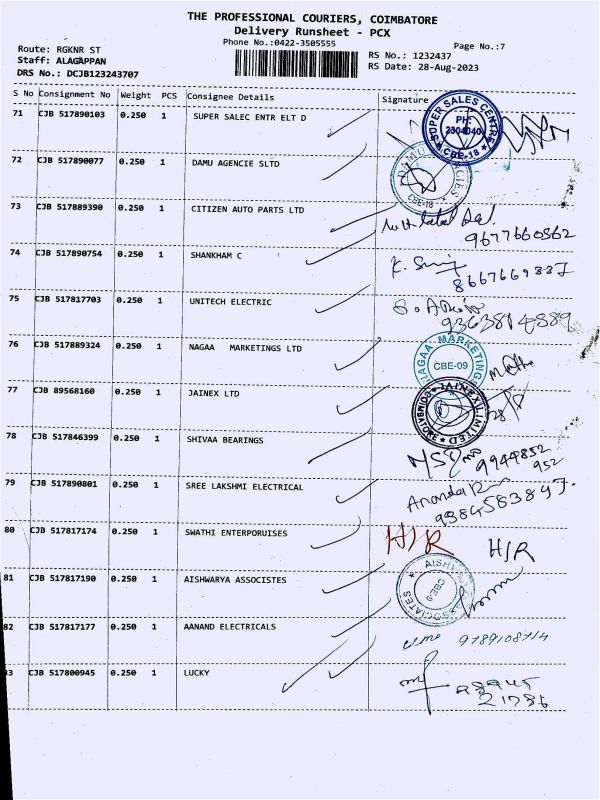 THE PROFESSIONAL COURIERS, COIMBATORE
Delivery Runsheet - PCX
Phone No.:0422-3505555
Page No.:7
Route: RGKNR ST
Staff: ALAGAPPAN
DRS No.: DCJB123243707
RS No.: 1232437
RS Date: 28-Aug-2023
S No Consignment No Weight PCS Consignee Details Signature
71 CJB 517890103 0.250 1 SUPER SALEC ENTR ELT D
SUPER SALES CENTRE PH: 2304040 CBE-18
72 CJB 517890077 0.250 1 DAMU AGENCIE SLTD
CBE-18
73 CJB 517889390 0.250 1 CITIZEN AUTO PARTS LTD
9677660862
74 CJB 517890754 0.250 1 SHANKHAM C
8667669887
75 CJB 517817703 0.250 1 UNITECH ELECTRIC
9363814889
76 CJB 517889324 0.250 1 NAGAA MARKETINGS LTD
NAGAA MARKETING CBE-09
77 CJB 89568160 0.250 1 JAINEX LTD
JAINEX LIMITED COIMBATORE
28/8
78 CJB 517846399 0.250 1 SHIVAA BEARINGS
9944852
952
79 CJB 517890801 0.250 1 SREE LAKSHMI ELECTRICAL
80 CJB 517817174 0.250 1 SWATHI ENTERPORUISES
H/R H/R
81 CJB 517817190 0.250 1 AISHWARYA ASSOCISTES
82 CJB 517817177 0.250 1 AANAND ELECTRICALS
9789108714
3 CJB 517800945 0.250 1 LUCKY
21786